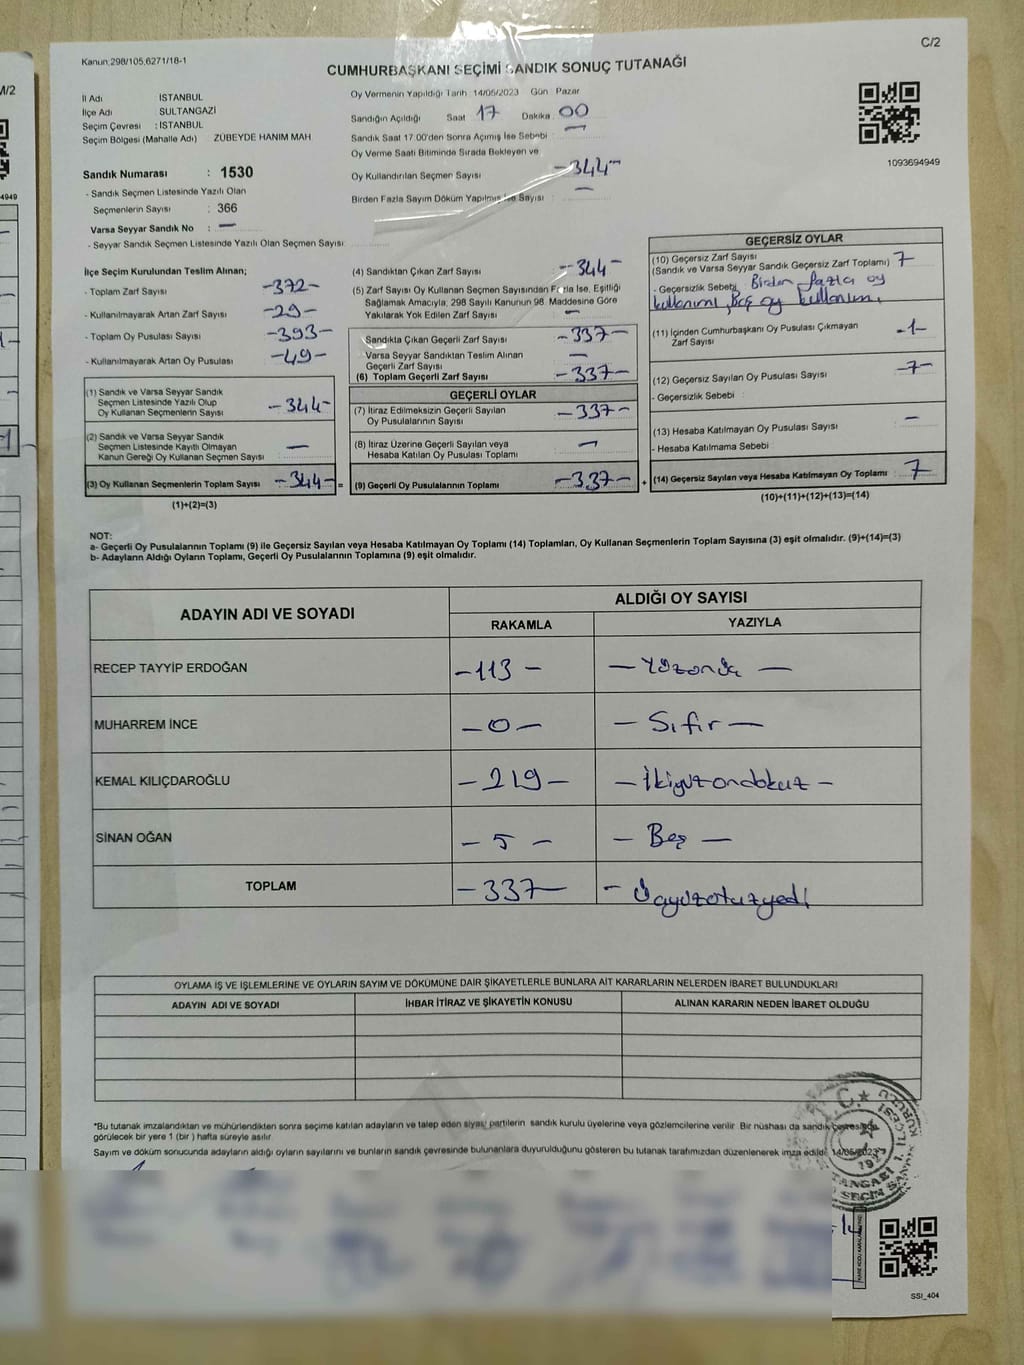 C/2
Kanun,298/105,6271/18-1
CUMHURBAŞKANI SEÇİMİ SANDIK SONUÇ TUTANAĞI
İl Adı İSTANBUL
İlçe Adı SULTANGAZİ
Seçim Çevresi : İSTANBUL
Seçim Bölgesi (Mahalle Adı) ZÜBEYDE HANIM MAH
Sandık Numarası : 1530
- Sandık Seçmen Listesinde Yazılı Olan
Seçmenlerin Sayısı : 366
Varsa Seyyar Sandık No : —
- Seyyar Sandık Seçmen Listesinde Yazılı Olan Seçmen Sayısı:
Oy Vermenin Yapıldığı Tarih :14/05/2023 Gün : Pazar
Sandığın Açıldığı Saat : 17 Dakika : 00
Sandık Saat 17:00'den Sonra Açılmış İse Sebebi : —
Oy Verme Saati Bitiminde Sırada Bekleyen ve
Oy Kullandırılan Seçmen Sayısı -344-
Birden Fazla Sayım Döküm Yapılmış İse Sayısı : —
1093694949
İlçe Seçim Kurulundan Teslim Alınan;
- Toplam Zarf Sayısı -372-
- Kullanılmayarak Artan Zarf Sayısı -29-
- Toplam Oy Pusulası Sayısı -393-
- Kullanılmayarak Artan Oy Pusulası -49-
(1) Sandık ve Varsa Seyyar Sandık
Seçmen Listesinde Yazılı Olup
Oy Kullanan Seçmenlerin Sayısı -344-
(2) Sandık ve Varsa Seyyar Sandık
Seçmen Listesinde Kayıtlı Olmayan
Kanun Gereği Oy Kullanan Seçmen Sayısı —
(3) Oy Kullanan Seçmenlerin Toplam Sayısı -344- =
(1)+(2)=(3)
(4) Sandıktan Çıkan Zarf Sayısı -344-
(5) Zarf Sayısı Oy Kullanan Seçmen Sayısından Fazla İse, Eşitliği
Sağlamak Amacıyla, 298 Sayılı Kanunun 98. Maddesine Göre
Yakılarak Yok Edilen Zarf Sayısı —
Sandıkta Çıkan Geçerli Zarf Sayısı -337-
Varsa Seyyar Sandıktan Teslim Alınan
Geçerli Zarf Sayısı —
(6) Toplam Geçerli Zarf Sayısı -337-
GEÇERLİ OYLAR
(7) İtiraz Edilmeksizin Geçerli Sayılan
Oy Pusulalarının Sayısı -337-
(8) İtiraz Üzerine Geçerli Sayılan veya
Hesaba Katılan Oy Pusulası Toplamı —
(9) Geçerli Oy Pusulalarının Toplamı -337- +
GEÇERSİZ OYLAR
(10) Geçersiz Zarf Sayısı
(Sandık ve Varsa Seyyar Sandık Geçersiz Zarf Toplamı) 7
- Geçersizlik Sebebi : Birden fazla oy
kullanımı, Boş oy kullanımı
(11) İçinden Cumhurbaşkanı Oy Pusulası Çıkmayan
Zarf Sayısı -1-
(12) Geçersiz Sayılan Oy Pusulası Sayısı -7-
- Geçersizlik Sebebi :
(13) Hesaba Katılmayan Oy Pusulası Sayısı —
- Hesaba Katılmama Sebebi :
(14) Geçersiz Sayılan veya Hesaba Katılmayan Oy Toplamı 7
(10)+(11)+(12)+(13)=(14)
NOT:
a- Geçerli Oy Pusulalarının Toplamı (9) ile Geçersiz Sayılan veya Hesaba Katılmayan Oy Toplamı (14) Toplamları, Oy Kullanan Seçmenlerin Toplam Sayısına (3) eşit olmalıdır. (9)+(14)=(3)
b- Adayların Aldığı Oyların Toplamı, Geçerli Oy Pusulalarının Toplamına (9) eşit olmalıdır.
ADAYIN ADI VE SOYADI ALDIĞI OY SAYISI
RAKAMLA YAZIYLA
RECEP TAYYİP ERDOĞAN -113- - Yüzonüç -
MUHARREM İNCE -0- - Sıfır -
KEMAL KILIÇDAROĞLU -219- - İkiyüzondokuz -
SİNAN OĞAN -5- - Beş -
TOPLAM -337- - Üçyüzotuzyedi
OYLAMA İŞ VE İŞLEMLERİNE VE OYLARIN SAYIM VE DÖKÜMÜNE DAİR ŞİKAYETLERLE BUNLARA AİT KARARLARIN NELERDEN İBARET BULUNDUKLARI
ADAYIN ADI VE SOYADI İHBAR İTİRAZ VE ŞİKAYETİN KONUSU ALINAN KARARIN NEDEN İBARET OLDUĞU
*Bu tutanak imzalandıktan ve mühürlendikten sonra seçime katılan adayların ve talep eden siyasi partilerin sandık kurulu üyelerine veya gözlemcilerine verilir. Bir nüshası da sandık çevresinde
görülecek bir yere 1 (bir ) hafta süreyle asılır.
Sayım ve döküm sonucunda adayların aldığı oyların sayılarını ve bunların sandık çevresinde bulunanlara duyurulduğunu gösteren bu tutanak tarafımızdan düzenlenerek imza edildi. 14/05/2023
SSİ_404